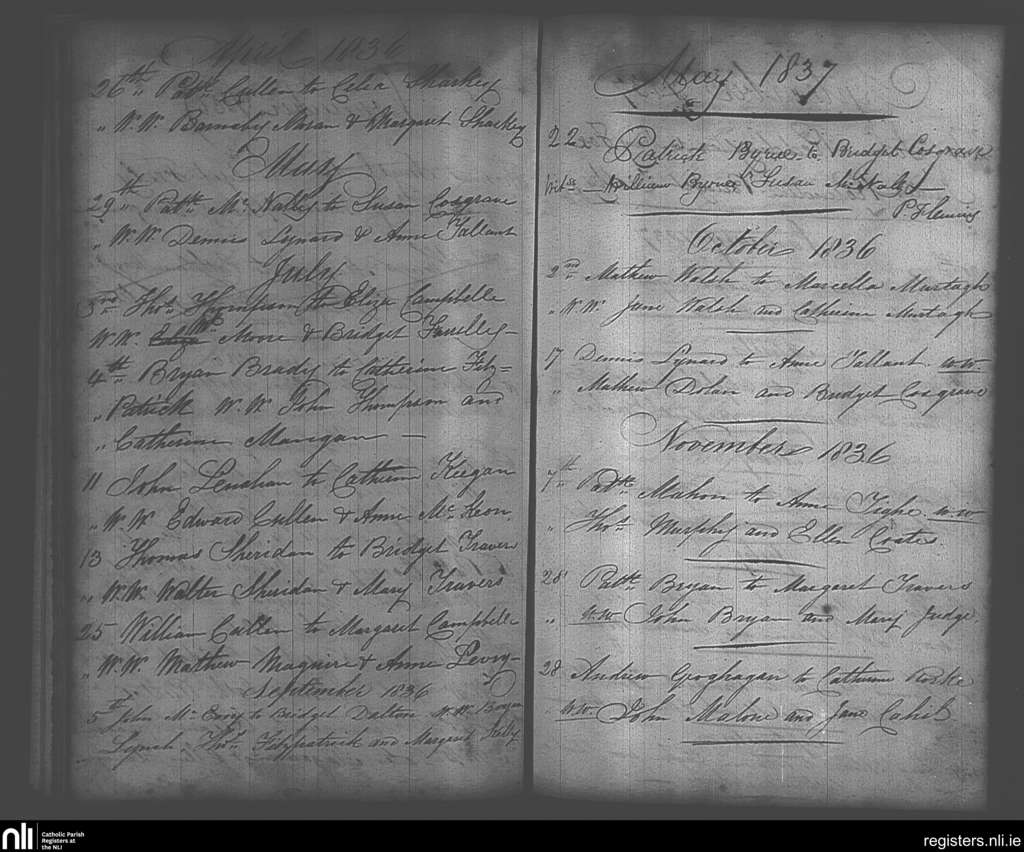 April 1836
26th „ Patk. Cullen to Celia Sharkey
„ W.W. Barnaby Moran & Margaret Sharkey
May
29th „ Patk. Mc. Nally to Susan Cosgrave
„ W.W. Dennis Lynard & Anne Tallant
July
3rd „ Thos. Thompson to Eliza Campbelle
W.W. Wm. Moore & Bridget
4th „ Bryan Brady to Catherine Fitz=
„ Patrick W.W. John Thompson and
„ Catherine Mangan —
11 John Lenahan to Catherine Keegan
„ W.W. Edward Cullen & Anne Mc. Keon.
13 Thomas Sheridan to Bridget Travers
„ W.W. Walter Sheridan & Mary Travers
25 William Cullen to Margaret Campbelle
„ W.W. Mathew Maguire & Anne
September 1836
5th John Mc. Evoy to Bridget Dalton W.W. Bryan
Lynch, Thos. Fitzpatrick and Margaret Kelly
May 1837
22 Patrick Byrne to Bridget Cosgrave
Wits. — William Byrne, Susan McNally —
P. Fleming
October 1836
2nd „ Mathew Walsh to Marcella Murtagh
„ W.W. Jane Walsh and Catherine Murtagh
17 Dennis Lynard to Anne Tallant. W.W.
„ Mathew Dolan and Bridget Cosgrave
November 1836
7th „ Patk. Mahon to Anne Tighe W.W.
„ Thos. Murphy and Ellen Coates
28 Patk. Bryan to Margaret Travers
„ W.W. John Bryan and Mary Judge.
28 Andrew Geoghagan to Catherine Roske
W.W. John Malone and Jane Cahil
nli Catholic Parish Registers at the NLI
registers.nli.ie